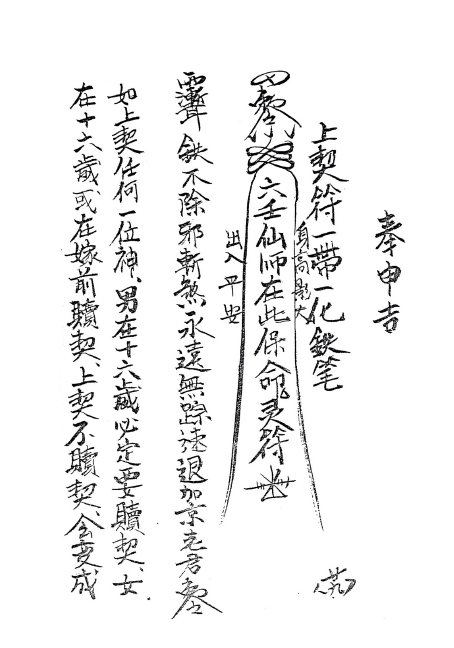 奉申吉
上契符一帶一化鉄笔
身高
六壬仙師在此保命灵符
出入平安
鉄不除邪斬煞永遠無踪速退
如上契任何一位神、男在十六歲必定要贖契、女
在十六歲或在嫁前贖契、上契不贖契、会变成